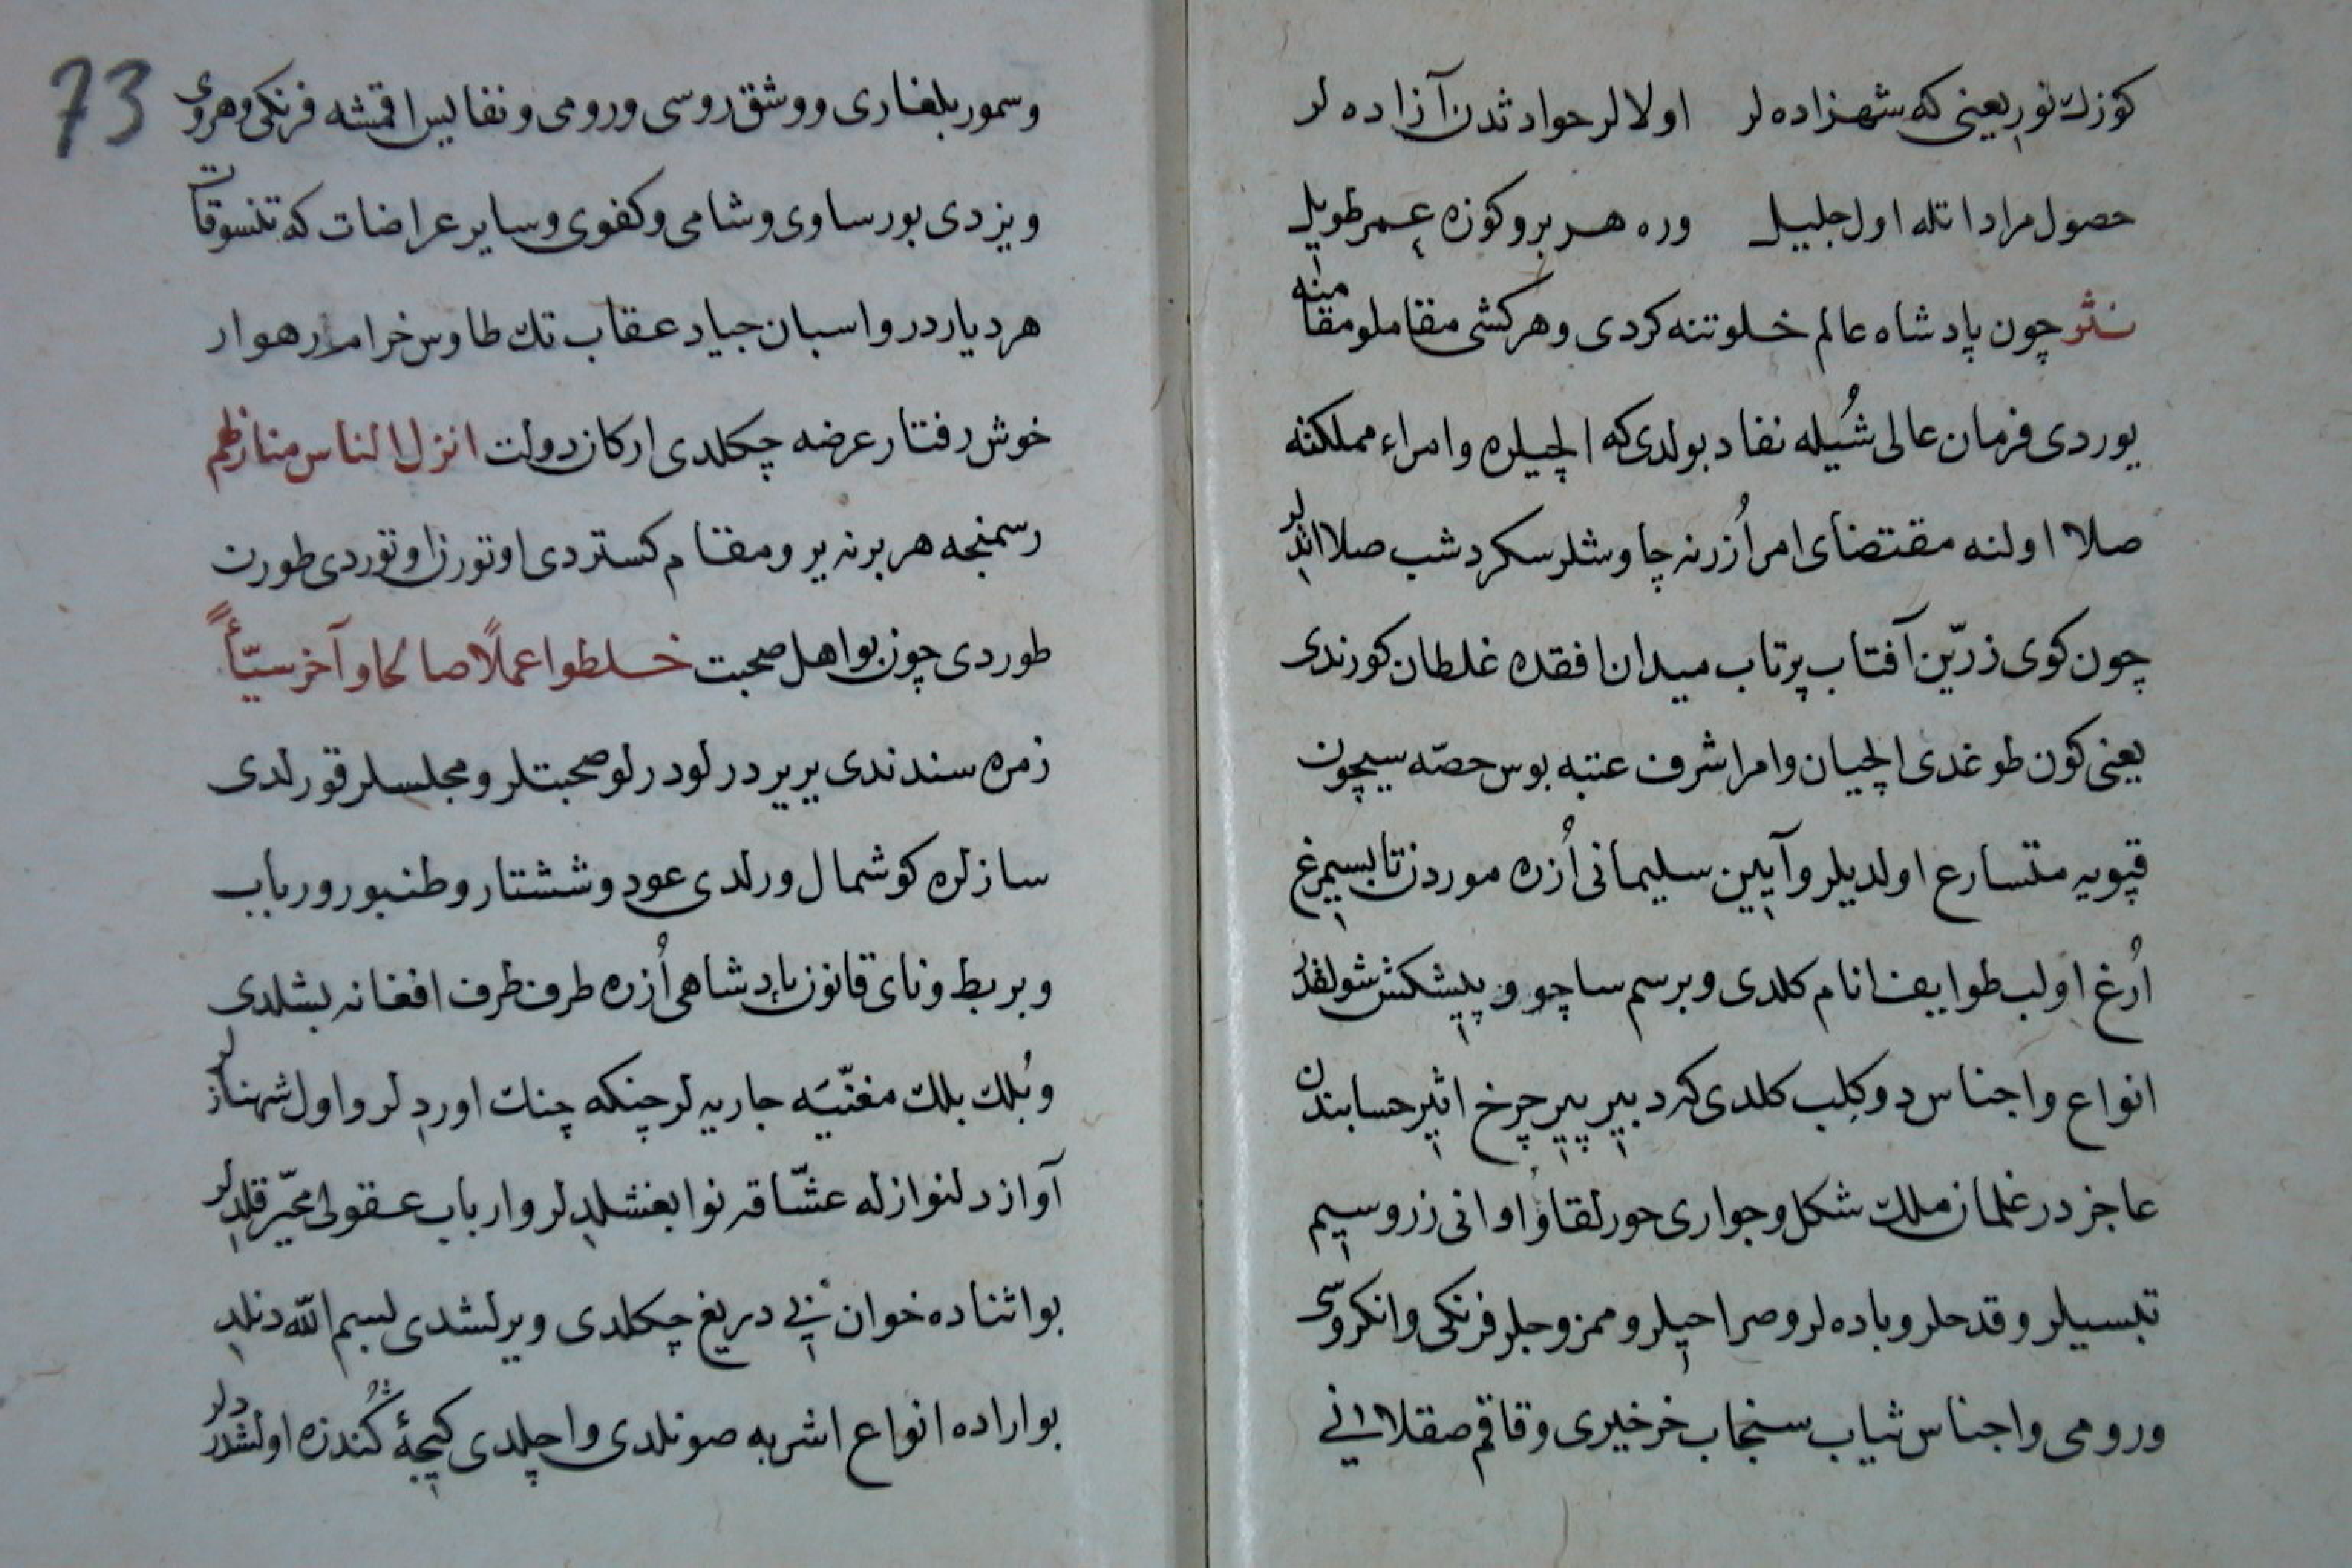 كوزك نوريعنى كه شهزاده لر اولالر حوادثدن آزاده لر
حصول مراد اتله اول جليل وره هر برو كوزه عمر طويل
نثر چون پادشاه عالم خلوتنه كردى وهركشى مقاملو مقامنه
يوردى فرمان عالى شُيله نفاد بولدى كه الچيلره وامراء مملكته
صلا اولنه مقتضاى امر اُزرنه چاوشلر سكردشب صلا اتدلر
چون كوى زرّين آفتاب پرتاب ميدان افقده غلطان كورندى
يعنى كون طوغدى الچيان وامرا شرف عتبه بوس حصّه سيچون
قپويه متسارع اولديلر وآيين سليمانى اُزره موردن تا بسيمرغ
اُرغ اولب طوايف انام كلدى وبرسم ساچو و پيشكش شولقدر
انواع واجناس دوكلب كلدى كه دبير پير چرخ اثير حسابندن
عاجزدر غلمان ملك شكل وجوارى حور لقا و اوانى زر وسيم
تبسيلر وقدحلر وباده لر وصراحيلر وممزوجلر فرنكى وانكروسى
ورومى واجناس ثياب سنجاب خرخيرى وقاقم صقلابى
73
وسمور بلغارى ووشق روسى ورومى ونفايس اقمشه فرنكى وهروى
ويزدى بورساوى وشامى وكفوى وساير عراضات كه تنسوقات
هرديار در واسبان جياد عقاب تك طاوس خرام رهوار
خوش رفتار عرضه چكلدى اركان دولت انزل الناس منازلهم
رسمنجه هر برنه ير ومقام كستردى اوتورن اوتوردى طورن
طوردى چون بو اهل صحبت خلطوا عملًا صالحا وآخر سيّئًا
زمره سندندى يرير درلو درلو صحبتلر ومجلسلر قورلدى
سازلره كوشمال ورلدى عود وششتار وطنبور ورباب
وبربط وناى قانون پادشاهى اُزره طرف طرف افغانه بشلدى
وبُلك بلك مغنّيَه جاريه لر چنكه چنك اوردلر واول شهنازلر
آواز دلنوازله عشّاقه نوا بغشلدلر وارباب عقولى محيّر قلدلر
بو اثناده خوان بى دريغ چكلدى ويرلشدى بسم الله دنلدى
بو اراده انواع اشربه صونلدى واچلدى كيجهٔ كُندزه اولشدردلر